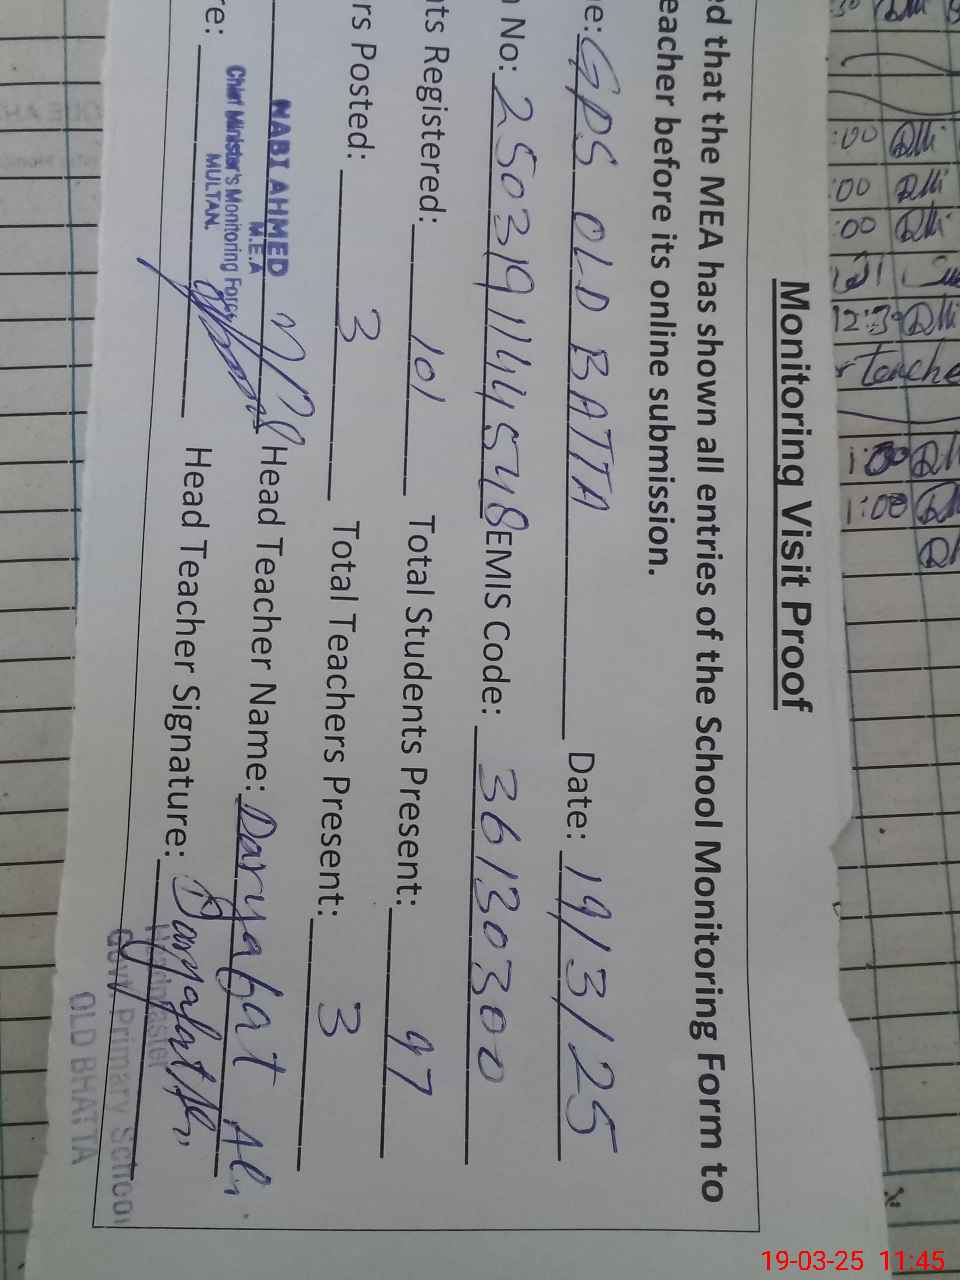 Monitoring Visit Proof
ed that the MEA has shown all entries of the School Monitoring Form to
eacher before its online submission.
e: GPS OLD BATTA Date: 19/3/25
n No: 2503191144548 EMIS Code: 36130300
nts Registered: 101 Total Students Present: 97
rs Posted: 3 Total Teachers Present: 3
Head Teacher Name: Daryafat Ali
NABI AHMED
M.E.A
Chief Minister's Monitoring Force
MULTAN.
re: Head Teacher Signature:
Headmaster
Govt. Primary School
OLD BHATTA
:00
:00
:00
12:30
r teache
1:00
1:00
19-03-25 11:45